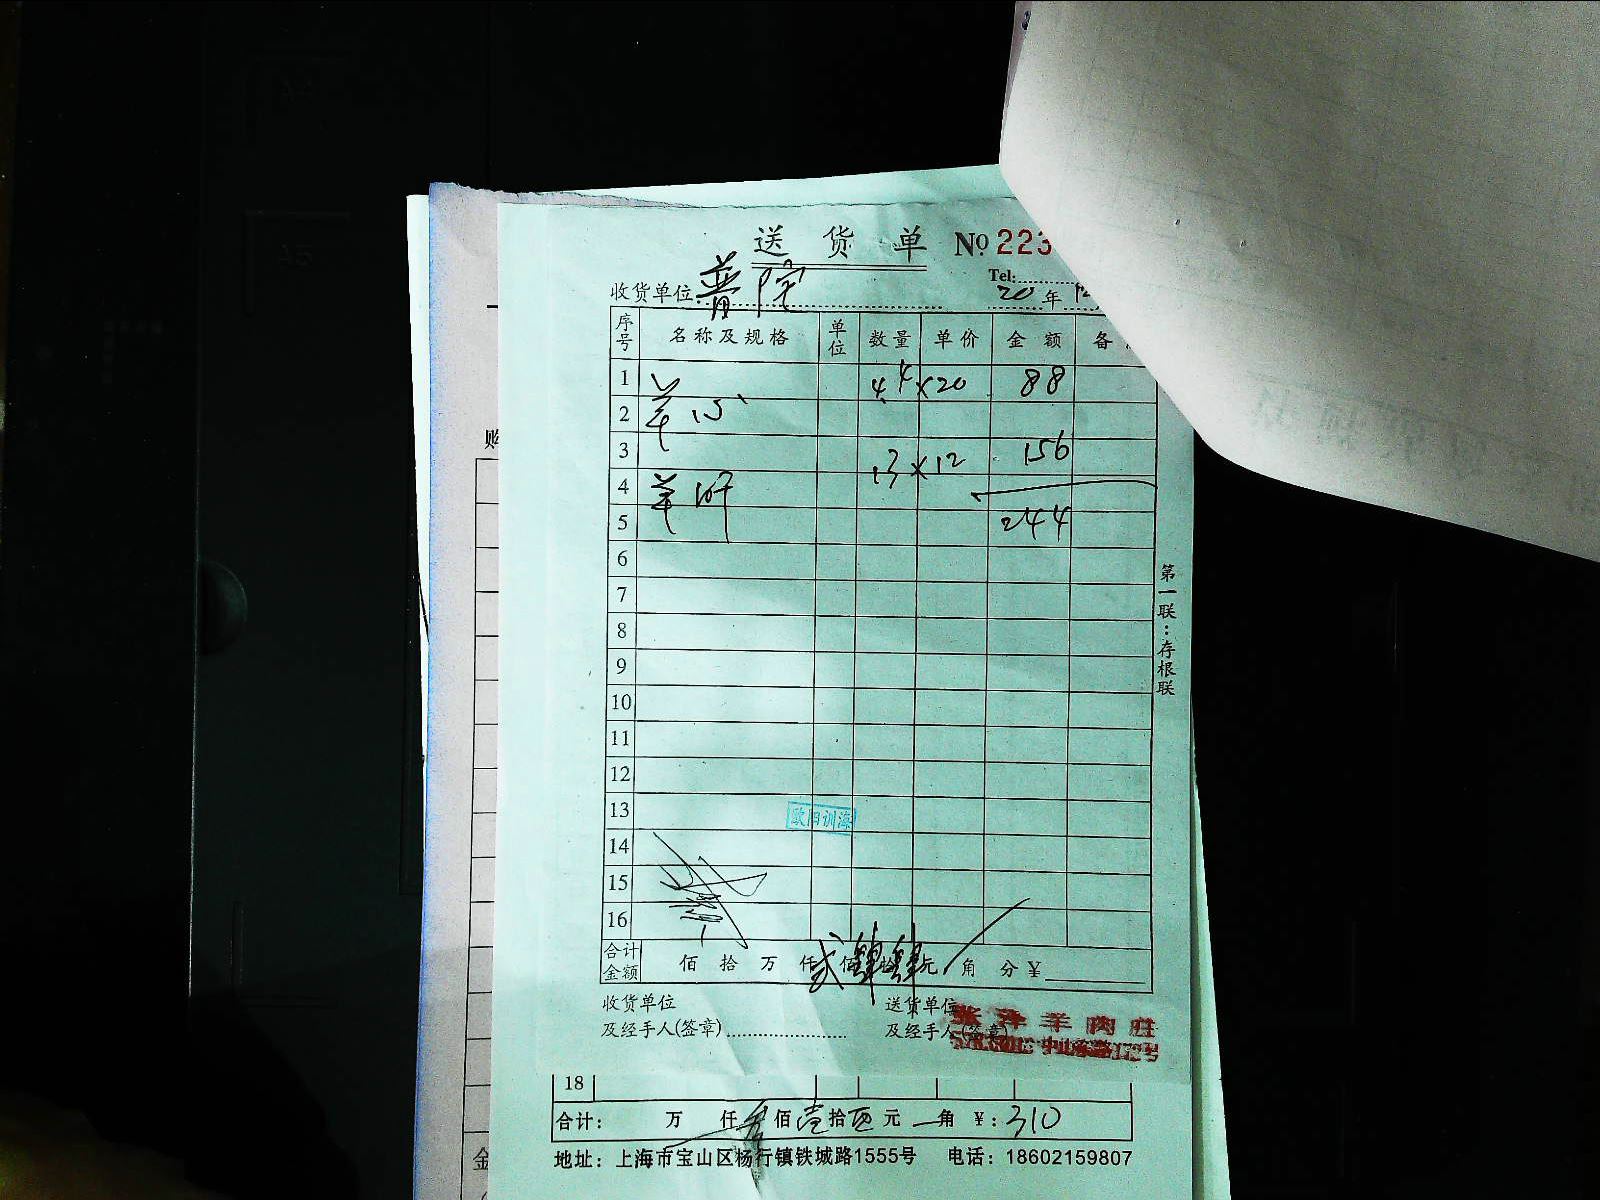 送 货 单 № 223
Tel:
收货单位: 普院 20 年 12
序号 名称及规格 单位 数量 单价 金额 备
1 4.4 × 20 88
2 羊心
3 13 × 12 156
4 羊肝
5 244
6
7
8
9
10
11
12
13
欧阳训海
14
15
16
合计金额 佰 拾 万 仟 贰 佰 肆 拾 肆 元 角 分 ¥
收货单位 送货单位
及经手人(签章) 及经手人(签章)
羊肉庄
第一联:存根联
购
18
合计: 万 仟 叁 佰 壹 拾 元 角 ¥: 310
地址: 上海市宝山区杨行镇铁城路1555号 电话: 18602159807
金